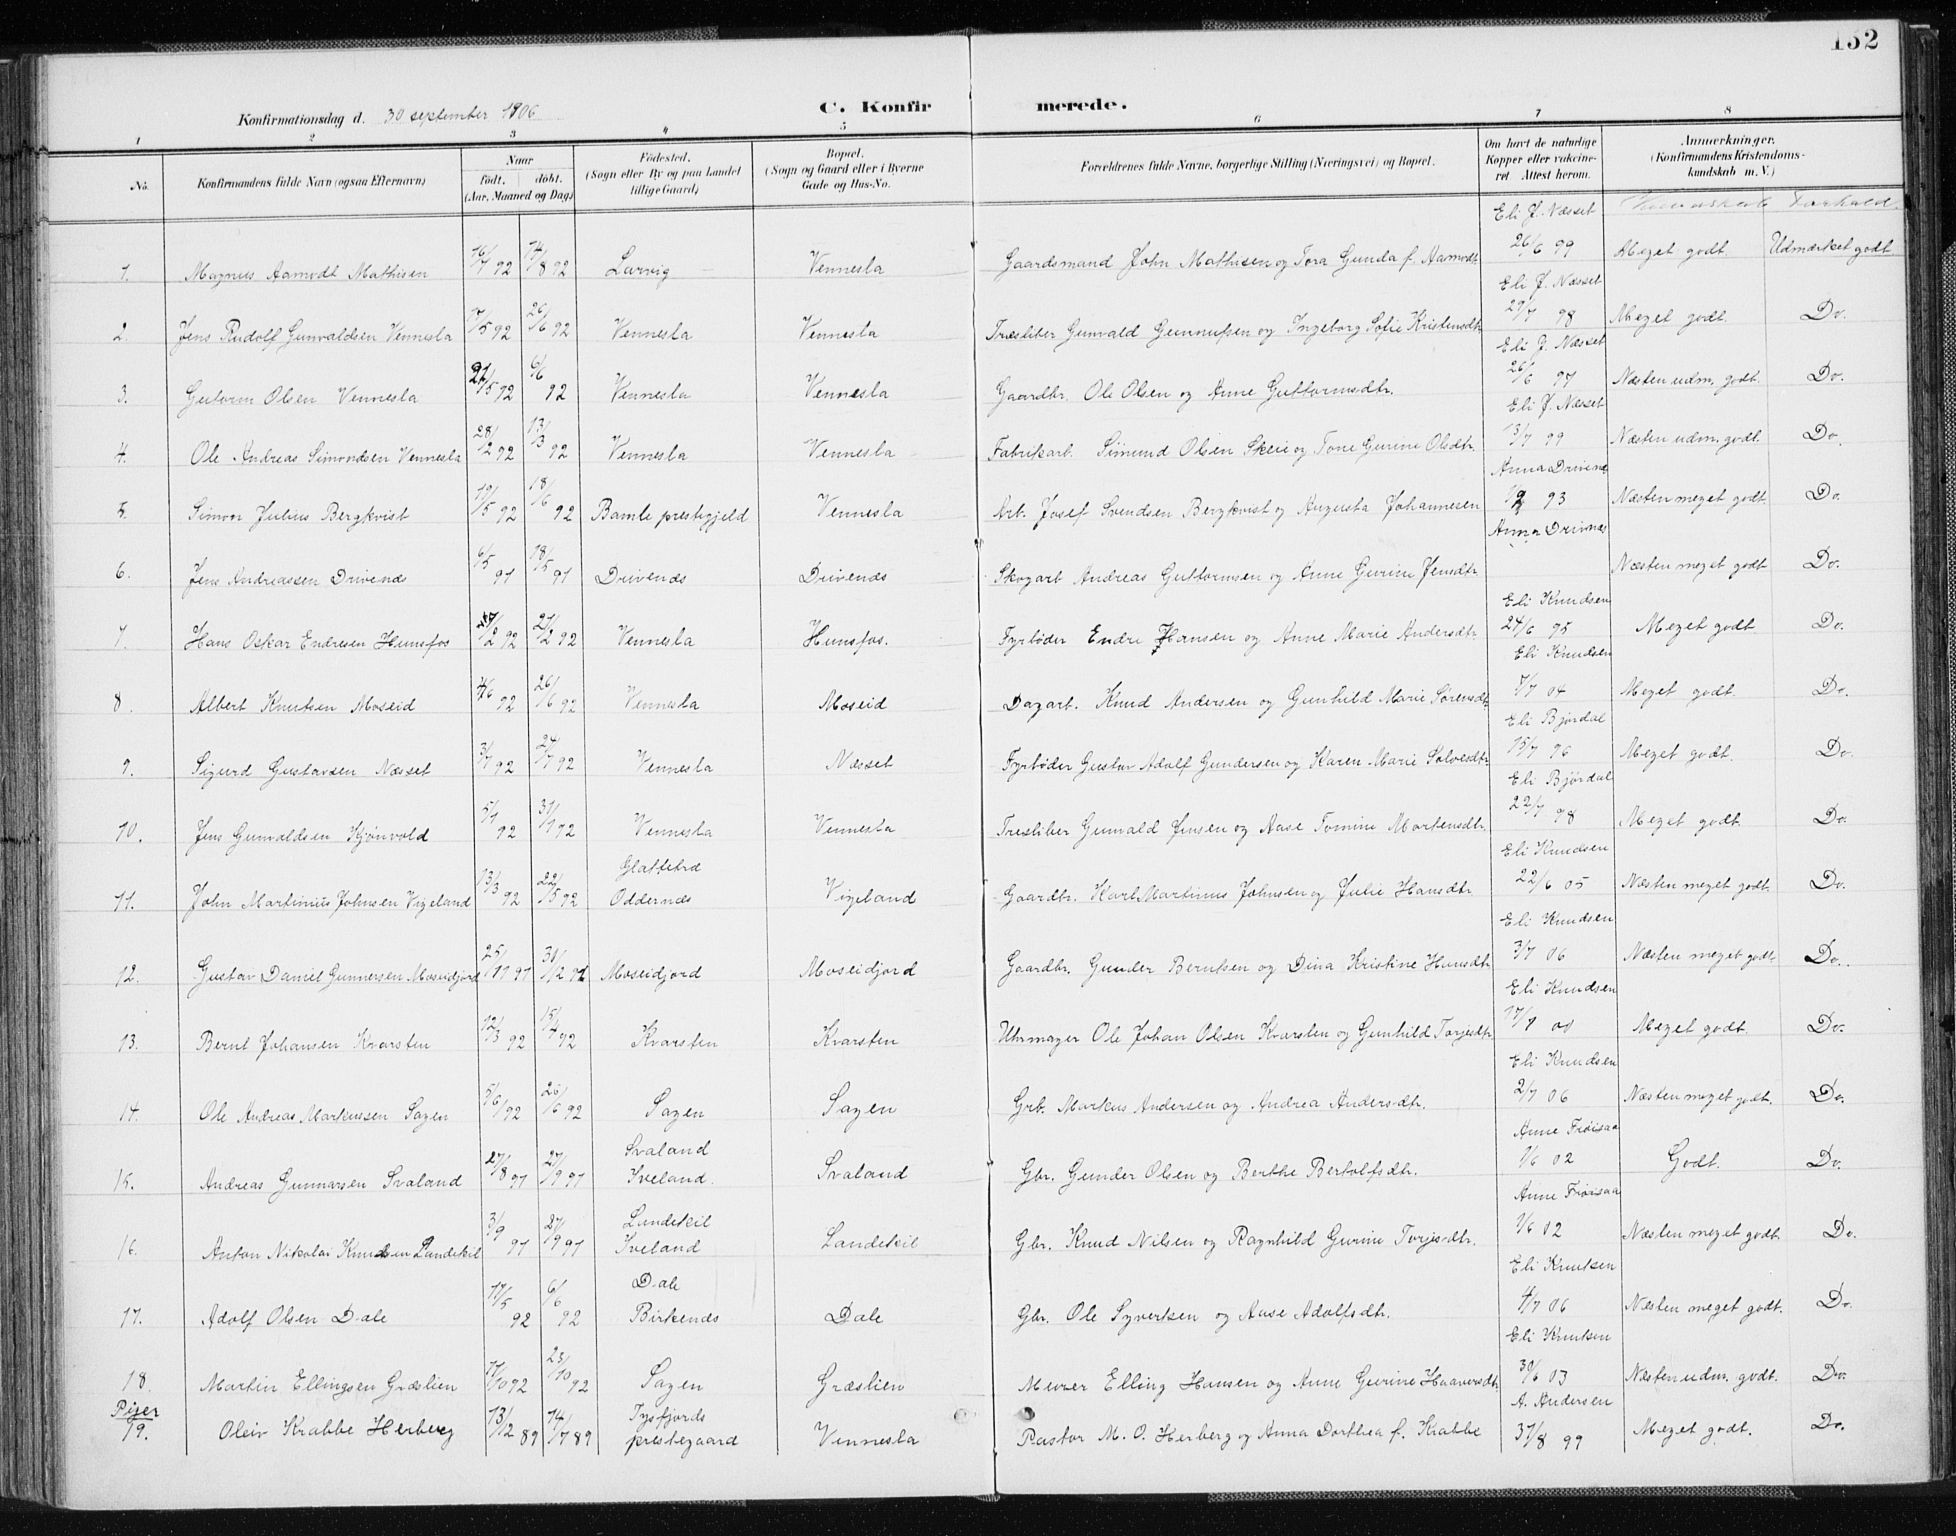 152
C. Konfirmerede.
Konfirmationsdag d. 30 september 1906
1 2 3 4 5 6 7 8
No. Konfirmandens fulde Navn (ogsaa Efternavn) Naar födt. döbt. (Aar, Maaned og Dag) Födested. (Sogn eller By og paa Landet tillige Gaard) Bopæl. (Sogn og Gaard eller i Byerne Gade og Hus-No. Forældrenes fulde Navne, borgerlige Stilling (Næringsvei) og Bopæl. Om havt de naturlige Kopper eller vakcineret Attest herom. Anmærkninger. (Konfirmandens Kristendomskundskab m. V.)
Kundskab Forhold
1. Magnus Aamodt Mathisen 16/7 92 14/8 92 Larvig Vennesla Gaardsmand John Mathisen og Tora Gunda f. Aamodt. Eli J. Næsset 26/6 99 Meget godt. Udmærket godt
2. Jens Rudolf Gunvaldsen Vennesla 17/5 92 26/6 92 Vennesla Vennesla Træsliber Gunvald Gunnufsen og Ingeborg Sofie Kristensdtr. Eli J. Næsset 29/7 98 Meget godt. Do.
3. Gutorm Olsen Vennesla 21/5 92 6/6 92 Vennesla Vennesla Gaardbr. Ole Olsen og Anne Guttormsdtr. Eli J. Næsset 26/6 97 Næsten udm. godt. Do.
4. Ole Andreas Simondsen Vennesla 28/2 92 13/3 92 Vennesla Vennesla Fabrikarb. Simund Olsen Skeie og Tone Gurine Olsdtr. Eli J. Næsset 13/7 99 Næsten udm. godt. Do.
5. Simon Julius Bergkvist 19/5 92 18/6 92 Bamle prestegjeld Vennesla Arb. Josef Svendsen Bergkvist og Augusta Johannesen Anna Drivenes 93 Næsten meget godt. Do.
6. Jens Andreassen Drivenes 6/5 91 18/5 91 Drivenes Drivenes Skogarb Andreas Guttormsen og Anne Gurine Jensdtr Anna Drivnes Næsten meget godt Do.
7. Hans Oskar Endresen Hunsfos /2 92 21/2 92 Vennesla Hunsfos. Fyrbøder Endre Hansen og Anne Marie Andersdtr. Eli Knudsen 24/6 95 Meget godt Do.
8. Albert Knutsen Moseid 4/6 92 26/6 92 Vennesla Moseid Dagarb. Knud Andersen og Gunhild Marie Sörensdtr Eli Knudsen 7/7 04 Meget godt. Do.
9. Sigurd Gustavsen Næsset 3/7 92 24/7 92 Vennesla Næsset Fyrbøder Gustav Adolf Gundersen og Karen Marie Salvesdtr Eli Bjørdal 13/7 96 Meget godt. Do.
10. Jens Gunvaldsen Kjønvold 5/1 92 31/1 92 Vennesla Vennesla Træsliber Gunvald Jensen og Aase Tomine Mortensdtr. Eli Bjørdal 22/7 98 Meget godt. Do.
11. John Martinius Johnsen Vigeland 13/3 92 22/5 92 Glattetræ Oddernes Vigeland Gaardbr. Karl Martinius Johnsen og Julie Hansdtr Eli Knudsen 22/6 05 Næsten meget godt. Do.
12. Gustav Daniel Gunnersen Moseidjord 25/11 91 31/12 91 Moseidjord Moseidjord Gaardbr. Gunder Berntsen og Dina Kristine Hansdtr Eli Knudsen 3/7 06 Næsten meget godt. Do.
13. Bernt Johansen Kvarsten 12/3 92 15/4 92 Kvarsten Kvarsten Uhrmager Ole Johan Olsen Kvarsten og Gunhild Torjesdtr Eli Knudsen 17/8 00 Meget godt. Do.
14. Ole Andreas Markussen Sagen 5/6 92 26/6 92 Sagen Sagen Grb. Markus Andersen og Andrea Andersdtr. Eli Knudsen 2/7 06 Næsten meget godt. Do.
15. Andreas Gunnarsen Svaland 27/8 91 27/9 91 Svaland Iveland. Svaland Gbr. Gunder Olsen og Berthe Bertolfsdtr. Anne Frøisaa 1/6 02 Godt. Do.
16. Anton Nikolai Knudsen Landekil 3/9 91 27/9 91 Landekil Iveland Landekil Gbr. Knud Nilsen og Ragnhild Gurine Torjesdtr. Anne Frøisaa 1/6 02 Næsten meget godt. Do.
17. Adolf Olsen Dale 17/5 92 6/6 92 Dale Birkenes Dale Gbr. Ole Syvertsen og Aase Adolfsdtr. Eli Knutsen 4/7 06 Næsten meget godt. Do.
18. Martin Ellingsen Græslien 17/10 92 23/10 92 Sagen Græslien Murer Elling Hansen og Anne Gurine Haaversdtr. Eli Knutsen 30/6 03 Næsten udm. godt. Do.
Piger
19. Oleiv Krabbe Herberg 13/12 89 14/7 89 Tysfjords prestegaard Vennesla Pastor M. O. Herberg og Anna Dorthea f. Krabbe A. Andersen 31/8 99 Meget godt. Do.